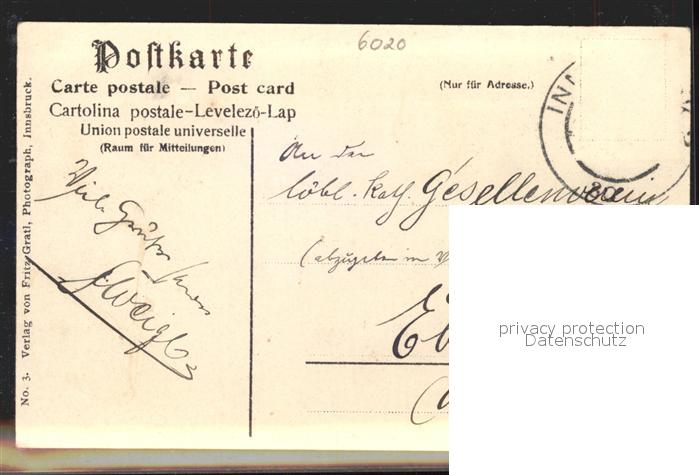 6020
Postkarte
Carte postale — Post card
Cartolina postale-Levelező-Lap
Union postale universelle
(Raum für Mitteilungen)
(Nur für Adresse.)
INN
An den
löbl. Kath. Gesellenverein
(abzugeben in
Viele Grüße
Weigl
No. 3. Verlag von Fritz Gratl, Photograph, Innsbruck.
privacy protection
Datenschutz